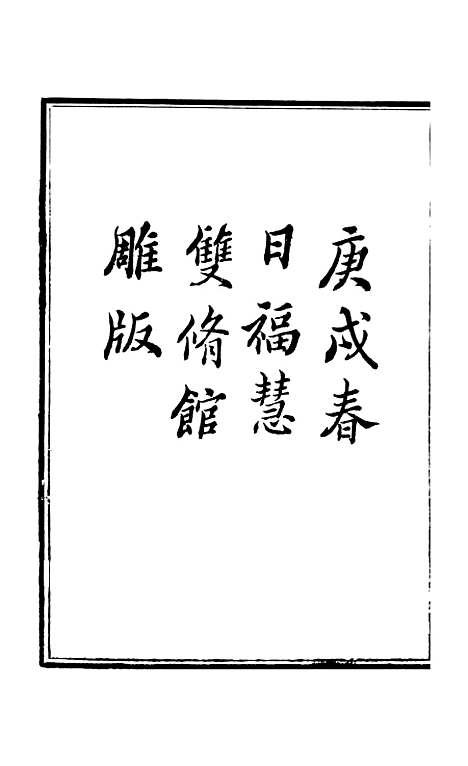 庚戌春
日福慧
雙脩館
雕版